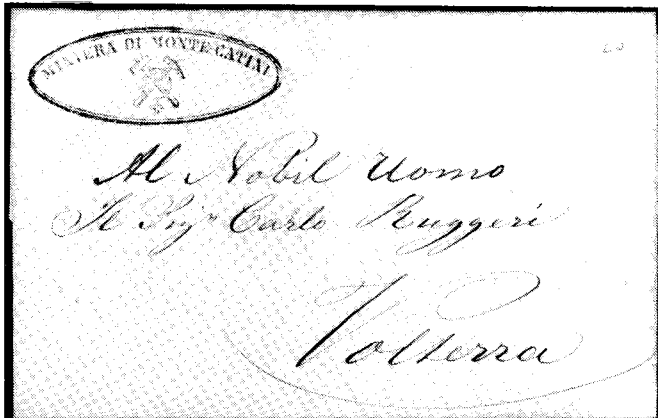 MINIERA DI MONTE-CATINI
Al Nobil Uomo
Il Sigr Carlo Ruggeri
Volterra